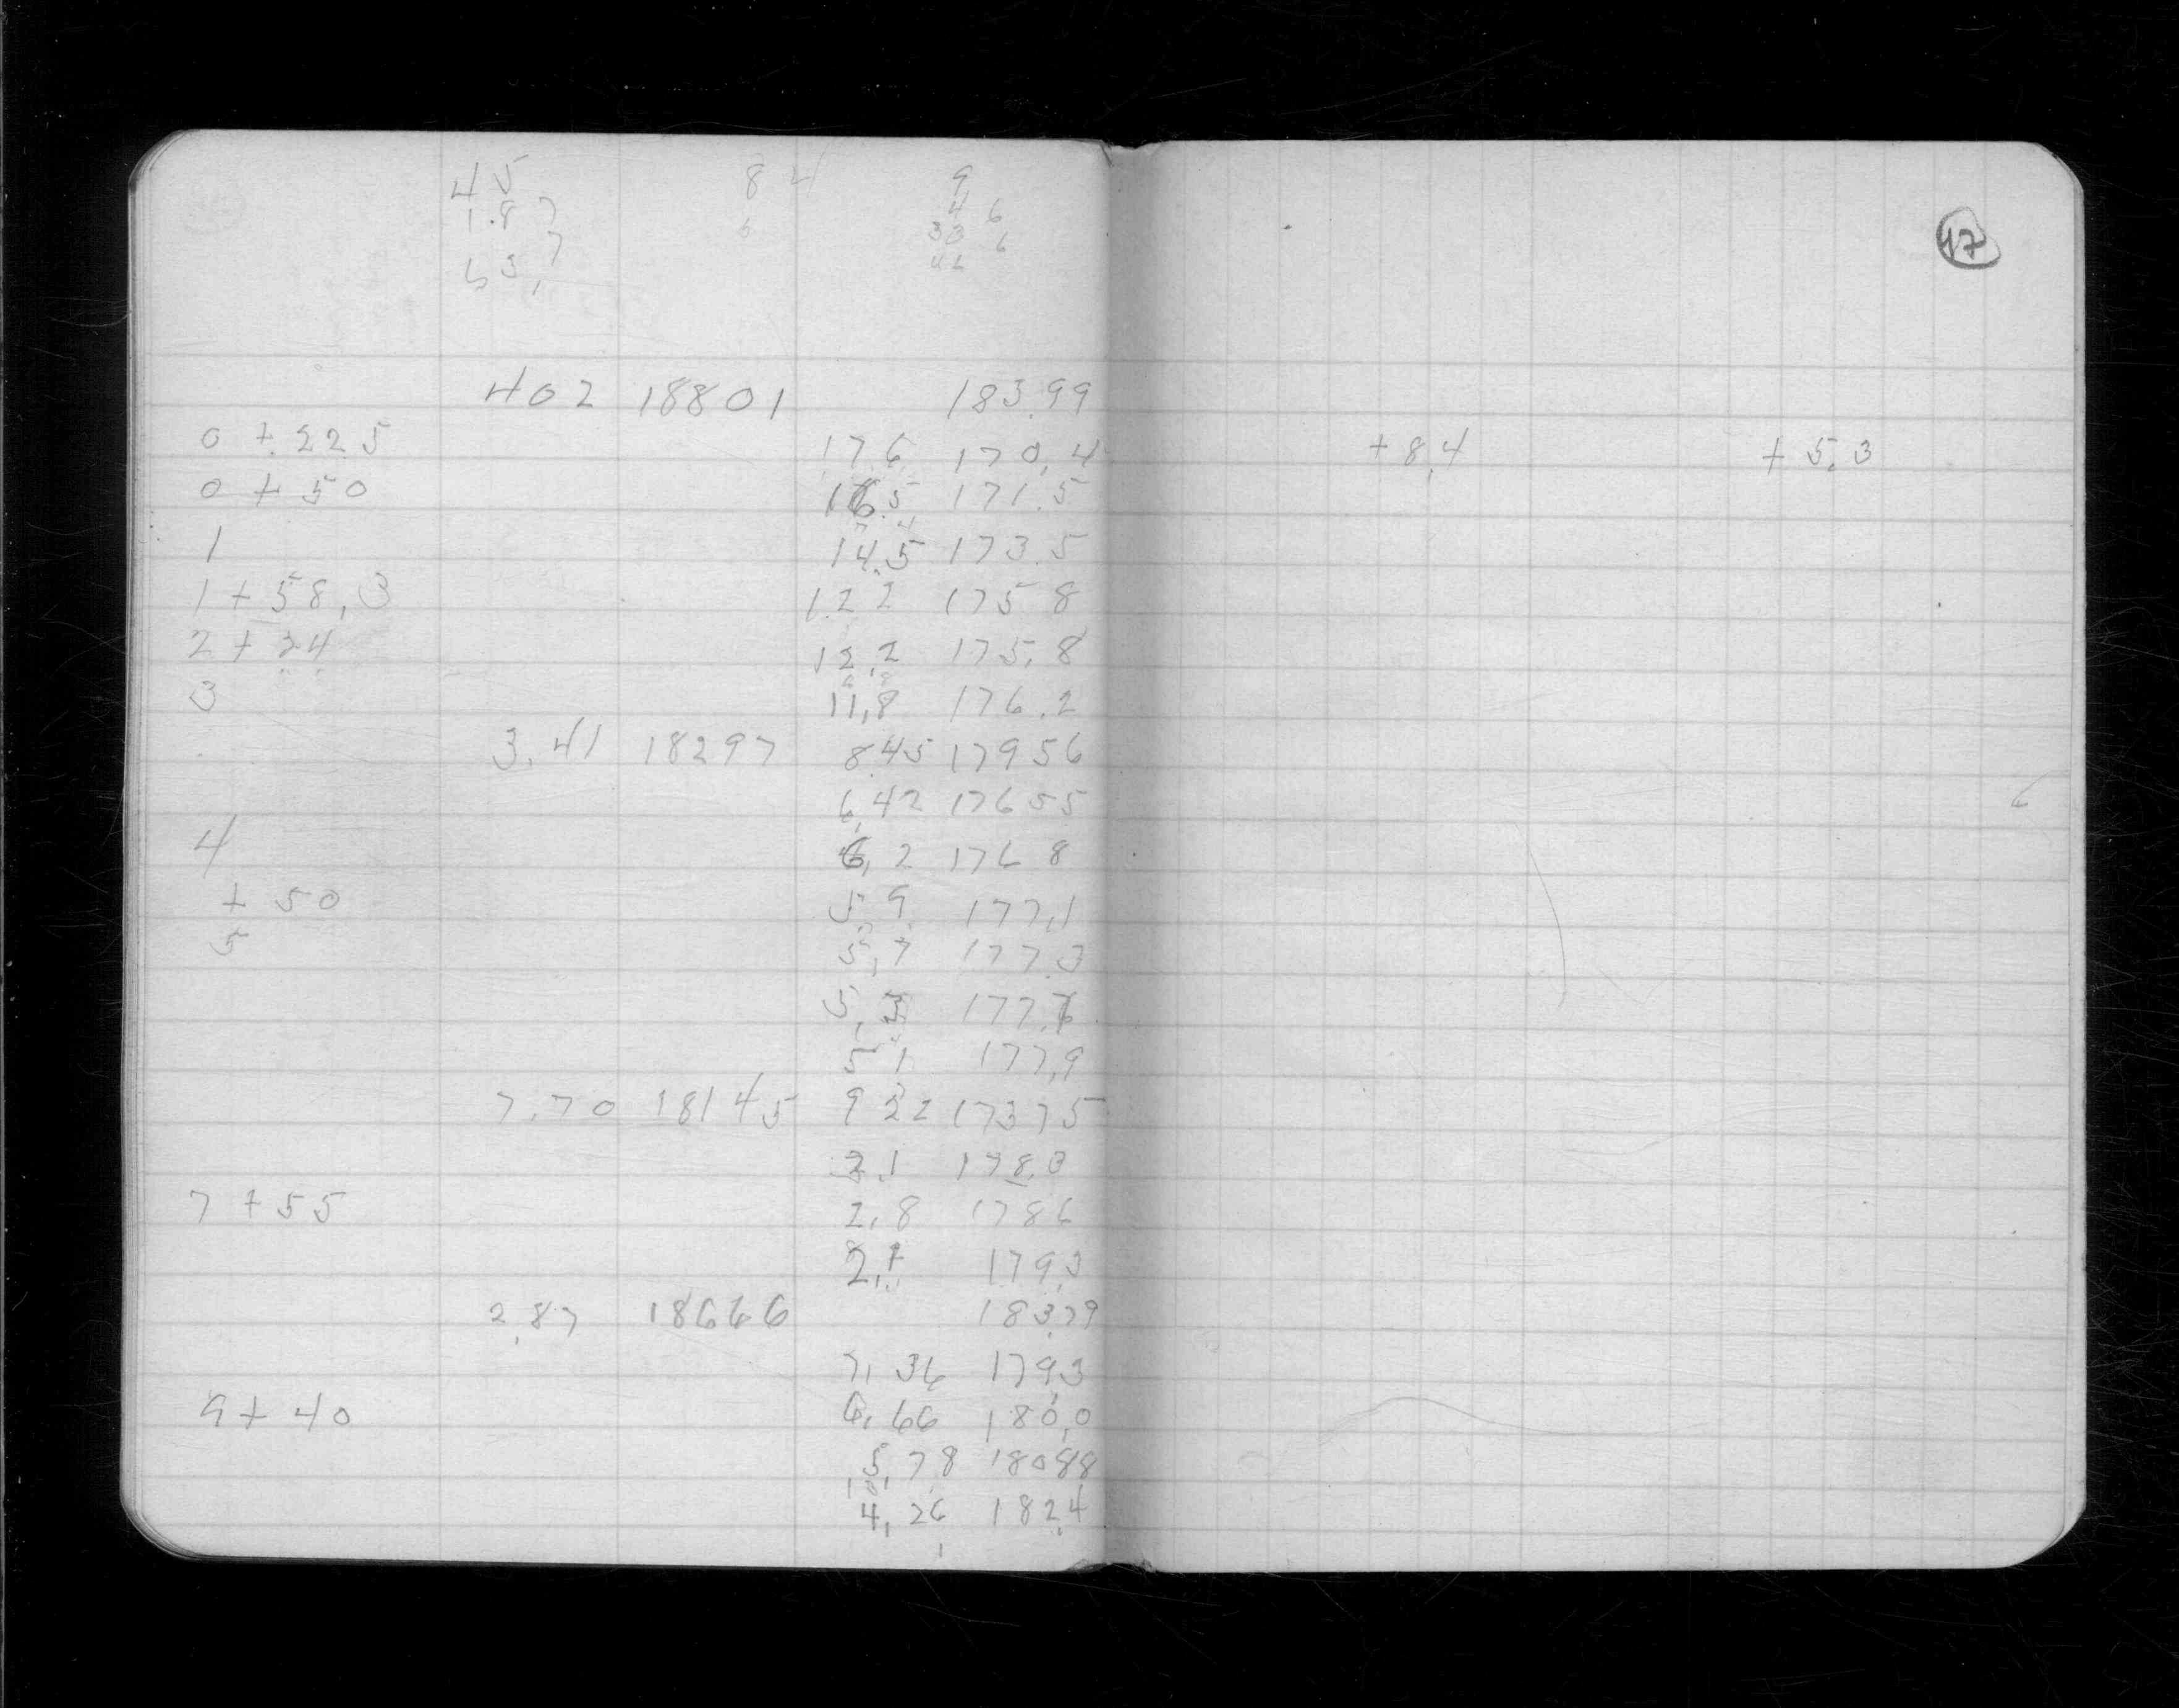 45 84 9
1.8 7 6 4 6
33 6
65,7 46
17
402 18801 183.99
0 + 22 5 17.6 170,4 + 8.4 + 5.3
0 + 50 16.5 171.5
1 14.5 173.5
1 + 58,3 12.2 175 8
2 + 34 12,2 175,8
3 11,8 176.2
3.41 18297 8.45 179 56
6,42 176 55
4 6,2 176 8
+ 50 5 9 177,1
5 5,7 177.3
5,3 177.7
5 1 177,9
7.70 18145 9 22 173 75
2.1 178.3
7 + 55 2,8 178 6
2,1 179,3
2.87 18666 183.79
7, 36 179 3
9 + 40 6, 66 180,0
5, 78 180 88
4, 26 182.4